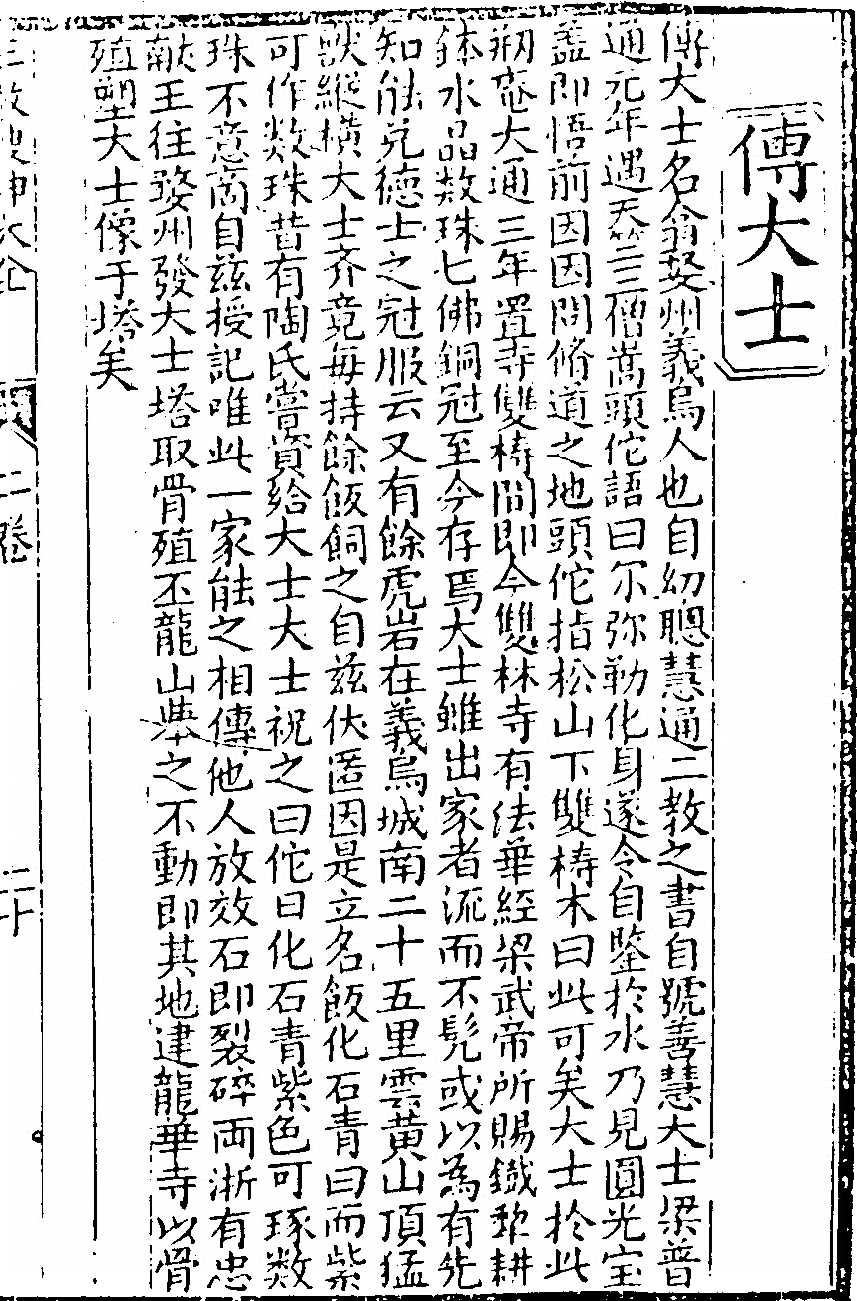 傅大士
傅大士名翕婺州義烏人也自幼聰慧通二教之書自號善慧大士梁普
通元年遇天竺三僧嵩頭佗語曰尔弥勒化身遂令自鑒於水乃見圓光宝
盖即悟前因因問脩道之地頭佗指松山下雙梼木曰此可矣大士於此
剏菴大通三年置寺雙梼間即今雙林寺有法華經梁武帝所賜鐵犂耕
鉢水晶数珠七佛銅冠至今存焉大士雖出家者流而不髡或以為有先
知能兑德士之冠服云又有餘虎岩在義烏城南二十五里雲黄山頂猛
獸縱横大士齐竟每持餘飯飼之自兹伏匿因是立名飯化石青曰而紫
可作数珠昔有陶氏嘗資給大士大士祝之曰佗日化石青紫色可琢数
珠不意啇自兹授記唯此一家能之相傳他人放效石即裂碎両浙有忠
献王往婺州發大士塔取骨殖丕龍山舉之不動即其地建龍華寺以骨
殖塑大士像于塔矣
二卷
二十